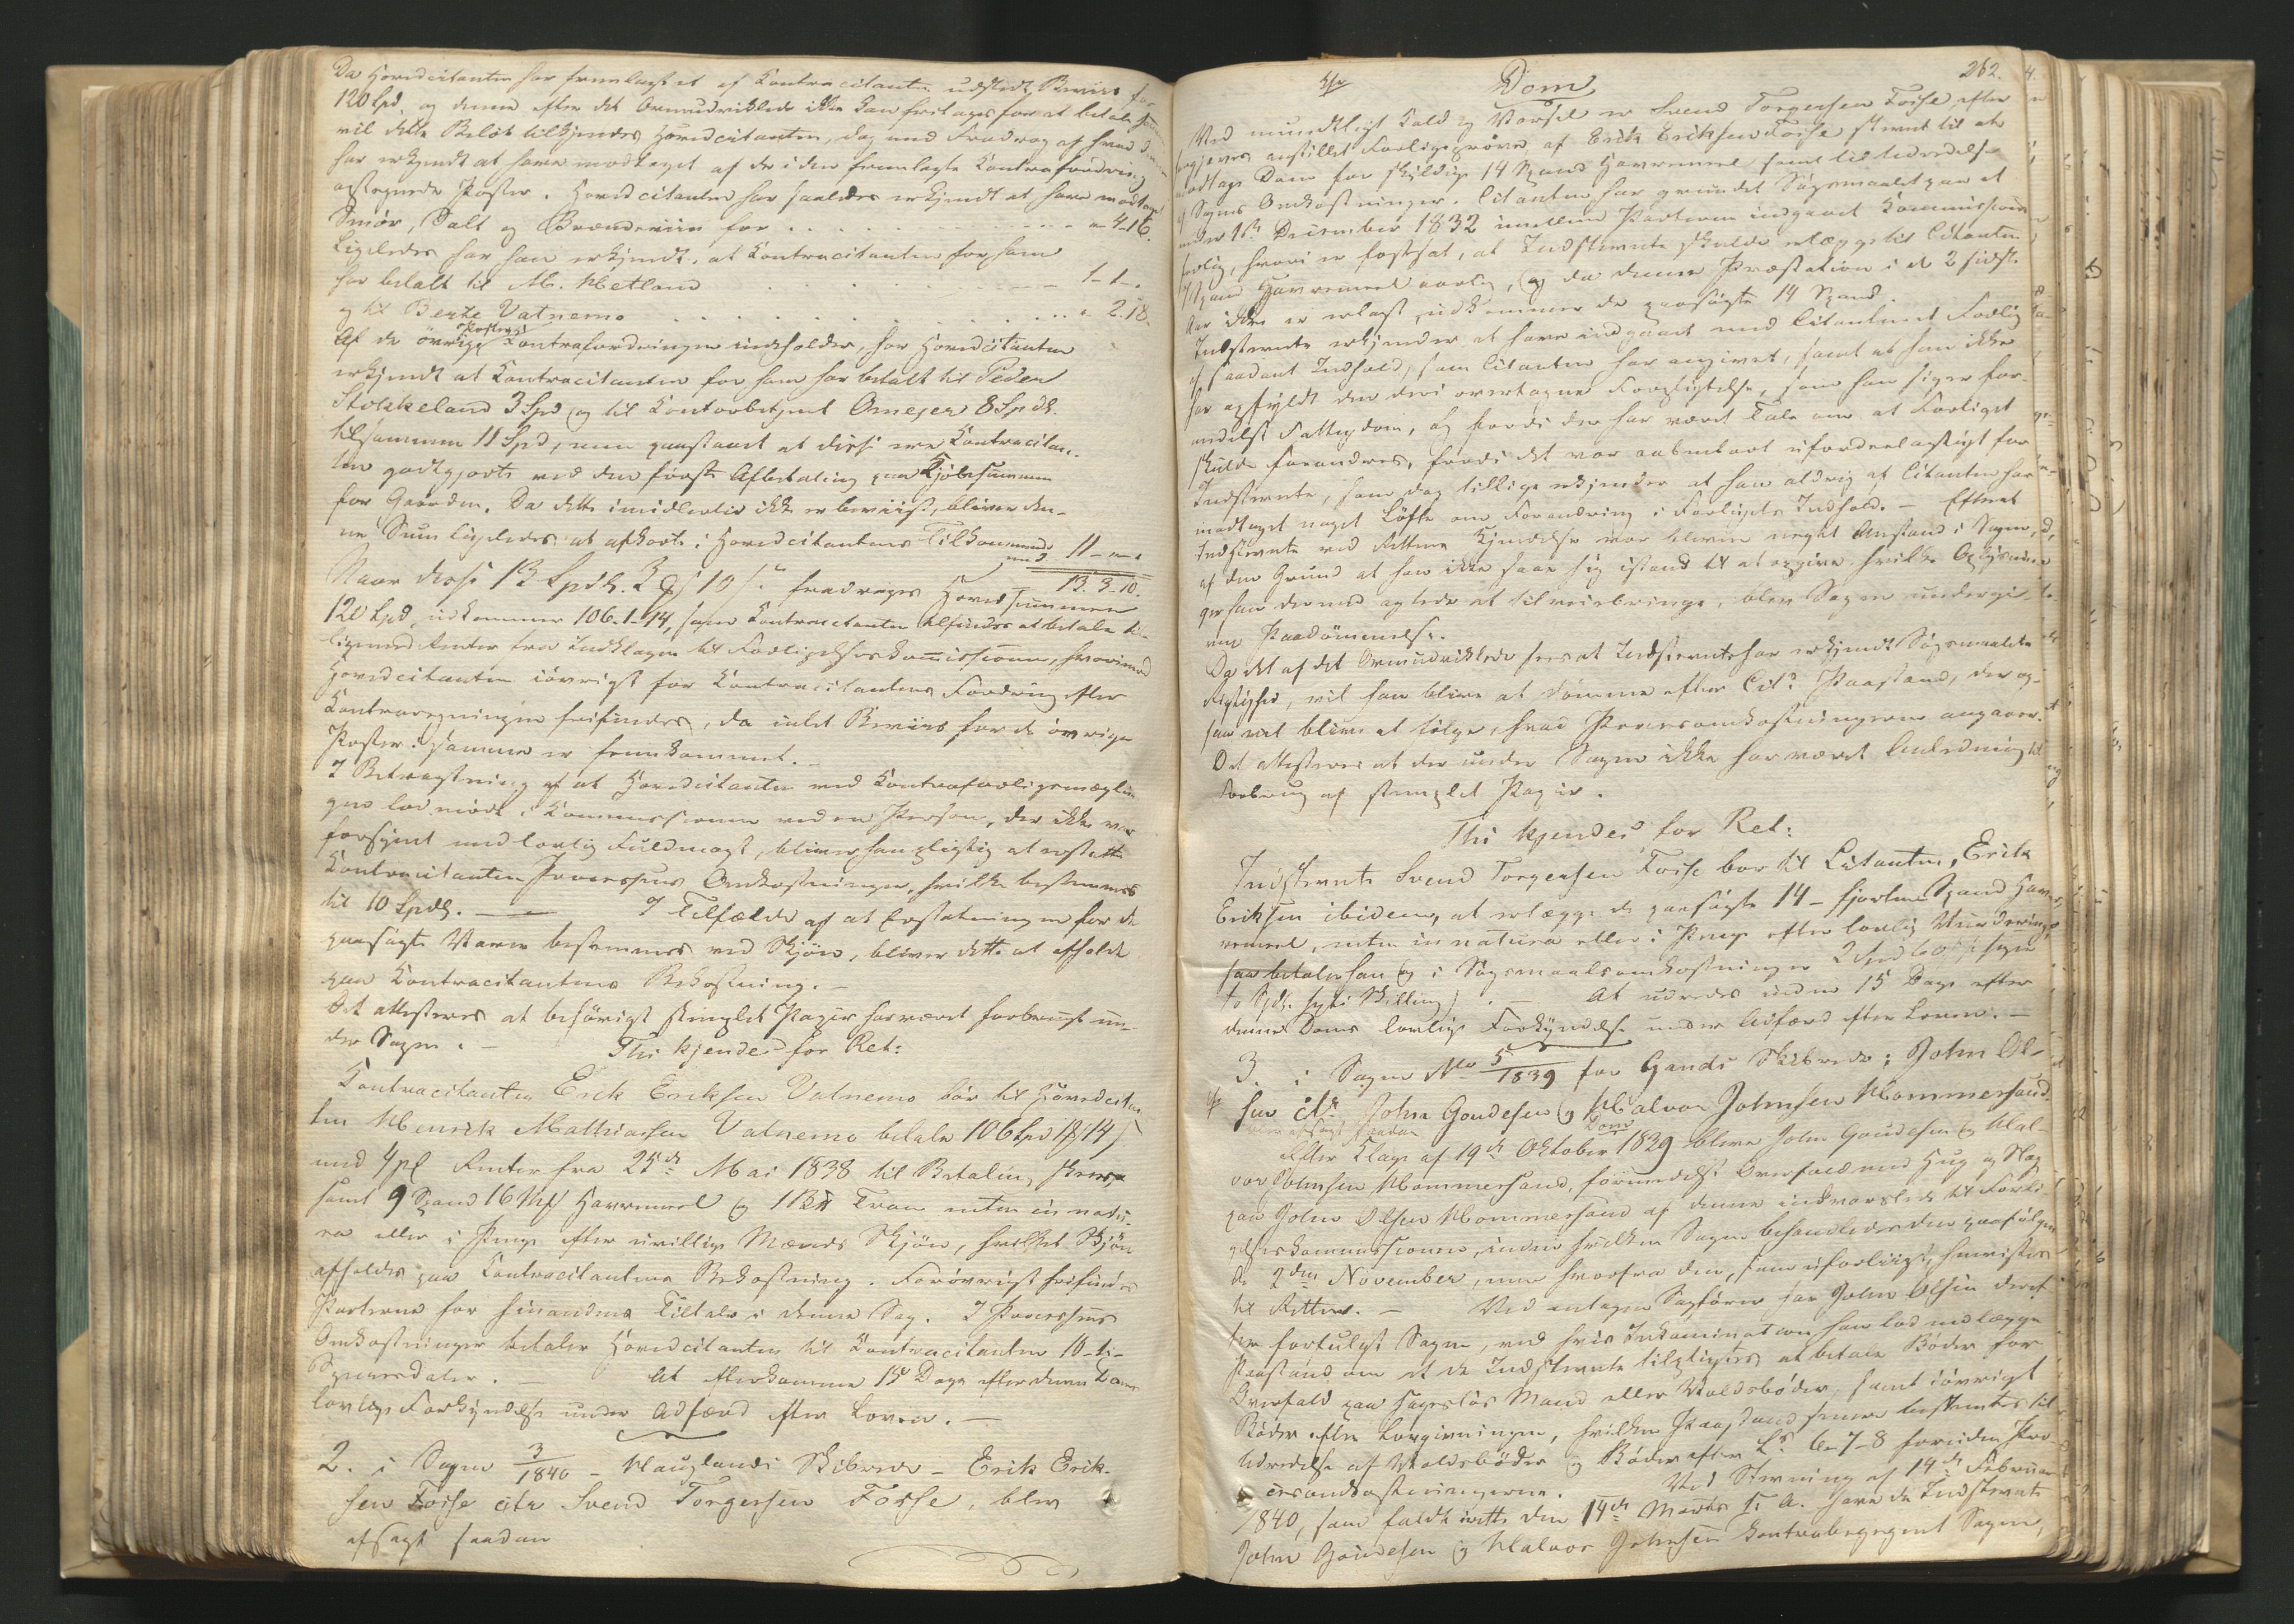 Da Hovedcitanten har fremlagt et af Contracitanten udstedt Beviis for
120 Spd, og denne efter det Omundviklede ikke kan fritages for at betale
vil dette Beløb tilkjendes Hovedcitanten, dog med Fradrag af hvad
har erkjendt at have modtaget af de i den fremlagte Contrafordring
opførte Poster. Hovedcitanten har saaledes erkjendt at have modtaget
Smør, Salt og Brændeviin for . . . . . . . . . . - 4-16.
Ligeledes har han erkjendt, at Contracitanten for ham
har betalt til M. Metland . . . . . . . . 1-1-.
og til Berte Vatnemo . . . . . . . . . . 2.18.
Af de øvrige Poster Contrafordringen indeholder, har Hovedcitanten
erkjendt at Contracitanten for ham har betalt til Peder
Stokkeland 3 Spd og til Contorbetjent Omejer 8 Spdl.
tilsammen 11 Spd, men paastaaet at disse ere Contracitan-
ten godtgjorte ved den første Afbetaling paa Kjøbesummen
for Gaarden. Da dette imidlertid ikke er beviist, bliver den-
ne Sum ligeledes at afkorte i Hovedcitantens Tilkommende
med 11-"-"
13.3.10.
Naar disse 13 Spdl. 3 # 10 s. fradrages Hovedsummen
120 Spd, udkommer 106-1-14, som Contracitanten tilfindes at betale til-
ligemed Renter fra Indklagen til Forligelseskommissionen, hvorimod
Hovedcitanten iøvrigt for Contracitantens Fordring efter
Contraregningen frifindes, da intet Beviis for de øvrige
Poster i samme er fremkommet. -
I Betragtning af at Hovedcitanten ved Contraforligsmæglin-
gen lod møde i Kommissionen ved en Person, der ikke var
forsynet med lovlig Fuldmagt, bliver han pligtig at erstatte
Contracitanten Processens Omkostninger, hvilke bestemmes
til 10 Spdl. — I Tilfælde af at Erstatningen for de
paasøgte Varer bestemmes ved Skjøn, bliver dette at afholde
paa Contracitantens Bekostning. -
Det attesteres at behørigt stemplet Papir har været forbrugt un-
der Sagen. - Thi kjendes for Ret:
Contracitanten Erik Eriksen Vatnemo bør til Hovedcitan-
ten Henrik Mathiasen Vatnemo betale 106 Spd 1 # 14 s
med 4 pC Renter fra 25de Mai 1838 til Betaling skeer,
samt 9 Spand 16 Mk Havremeel og 1 Tran enten in natu-
ra eller i Penge efter uvillige Mænds Skjøn, hvilket Skjøn
afholdes paa Contracitantens Bekostning. Forøvrigt frifindes
Parterne for hinandens Tiltale i denne Sag. I Processens
Omkostninger betaler Hovedcitanten til Contracitanten 10-ti-
Speciesdaler. - At efterkomme 15 Dage efter denne Doms
lovlige Forkyndelse under Adfærd efter Loven. -
2. i Sagen 3/1840 - Hauglands Skibrede - Erik Erik-
sen Fosse citr Svend Torgersen Fosse, blev
afsagt saadan
262.
Dom
Ved mundtligt Kald og Varsel er Svend Torgersen Fosse, efter
forgjæves anstillet Forligsprøve af Erik Eriksen Fosse stevnt til at
modtage Dom for skyldige 14 Spand Havremeel samt til Udredelse
af Sagens Omkostninger. Citanten har grundet Søgsmaalet paa et
under 1ste December 1832 imellem Parterne indgaaet Kommissions-
forlig, hvori er fastsat, at Indstevnte skulde erlægge til Citanten
7 Spand Havremeel aarlig, og da denne Præstation i de 2 sidste
Aar ikke er erlagt, udkommer de paasøgte 14 Spand.
Indstevnte erkjender at have indgaaet med Citanten et Forlig
af saadant Indhold, som Citanten har angivet, samt at han ikke
har opfyldt den deri overtagne Forpligtelse, som han siger for-
medelst Fattigdom, og fordi der har været Tale om at Forliget
skulde forandres, fordi det var aabenbart ufordeelagtigt for
Indstevnte, som dog tillige erkjender at han aldrig af Citanten har
modtaget noget Løfte om Forandring i Forligets Indhold. - Efterat
Indstevnte ved Rettens Kjendelse var bleven negtet Anstand i Sagen,
af den Grund at han ikke saae sig istand til at opgive hvilke Oplysnin-
ger han dermed agtede at tilveiebringe, blev Sagen undergi-
ven Paadømmelse.
Da det af det Omundviklede sees at Indstevnte har erkjendt Søgsmaalets
Rigtighed, vil han blive at dømme efter Cits Paastand, der og-
saa vil blive at følge, hvad Procesomkostningerne angaaer.
Det attesteres at der under Sagen ikke har været Anledning til
Forbrug af stemplet Papir.
Thi kjendes for Ret:
Indstevnte Svend Torgersen Fosse bør til Citanten, Erik
Eriksen ibidem, at erlægge de paasøgte 14 - fjorten Spand Hav-
remeel, enten in natura eller i Penge efter lovlig Vurdering,
saa betaler han og i Søgsmaalsomkostninger 2 Spd 60 s. siger
to Spdl. sexti Skilling. - At udredes inden 15 Dage efter
denne Doms lovlige Forkyndelse under Adfærd efter Loven. -
3. i Sagen No 5/1839 for Gands Skibrede: John Ol-
sen citr John Goudesen og Halvor Johnsen Hommersand
blev afsagt saadan Dom
Efter Klage af 19de Oktober 1839 bleve John Goudesen og Hal-
vor Johnsen Hommersand, formedelst Overfald med Hug og Slag
paa John Olsen Hommersand af denne indvarslede til Forli-
gelseskommissionen, inden hvilken Sagen behandledes den paafølgen-
de 2den November, men hvorfra den, som uforligt, henvistes
til Retten. - Ved antagen Sagfører har John Olsen deref-
ter fortulgt Sagen, ved hvis Inkamination han lod nedlægge
Paastand om at de Indstevnte tilpligtes at betale Bøder for
Overfald paa sagesløs Mand eller Voldsbøder, samt iøvrigt
Bøder efter Lovgivningen, hvilken Paastand senere bestemtes til
Udredelse af Voldsbøder og Bøder efter L's 6-7-8 foruden Pro-
cesomkostningerne. Ved Stevning af 14de Februar
1840, som faldt irette den 14de Marts s. A. have de Indstevnte
John Goudesen og Halvor Johnsen kontrabegegnet Sagen,